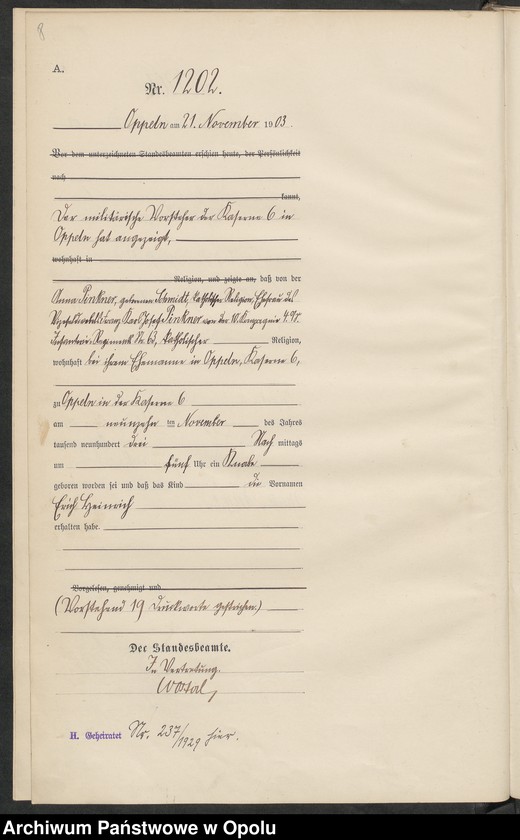 8
A.
Nr. 1202.
Oppeln am 21. November 1903
Vor dem unterzeichneten Standesbeamten erschien heute, der Persönlichkeit
nach
kannt,
Der militärische Vorsteher der Kaserne 6 in
Oppeln hat angezeigt,
wohnhaft in
Religion, und zeigte an, daß von der
Anna Pinkner, geborenen Schmidt, katholischer Religion, Ehefrau des
Vizefeldwebels Franz Karl Josef Pinkner von der 10. Kompagnie 4. O.S.
Infanterie-Regiments Nr. 63, katholischer Religion,
wohnhaft bei ihrem Ehemanne in Oppeln, Kaserne 6,
zu Oppeln in der Kaserne 6
am neunzehn ten November des Jahres
tausend neunhundert drei Nach mittags
um fünf Uhr ein Knabe
geboren worden sei und daß das Kind die Vornamen
Erich Heinrich
erhalten habe.
Vorgelesen, genehmigt und
(Vorstehend 19 Druckworte gestrichen.)
Der Standesbeamte.
In Vertretung.
H. Geheiratet Nr. 237/1929 hier.
Archiwum Państwowe w Opolu